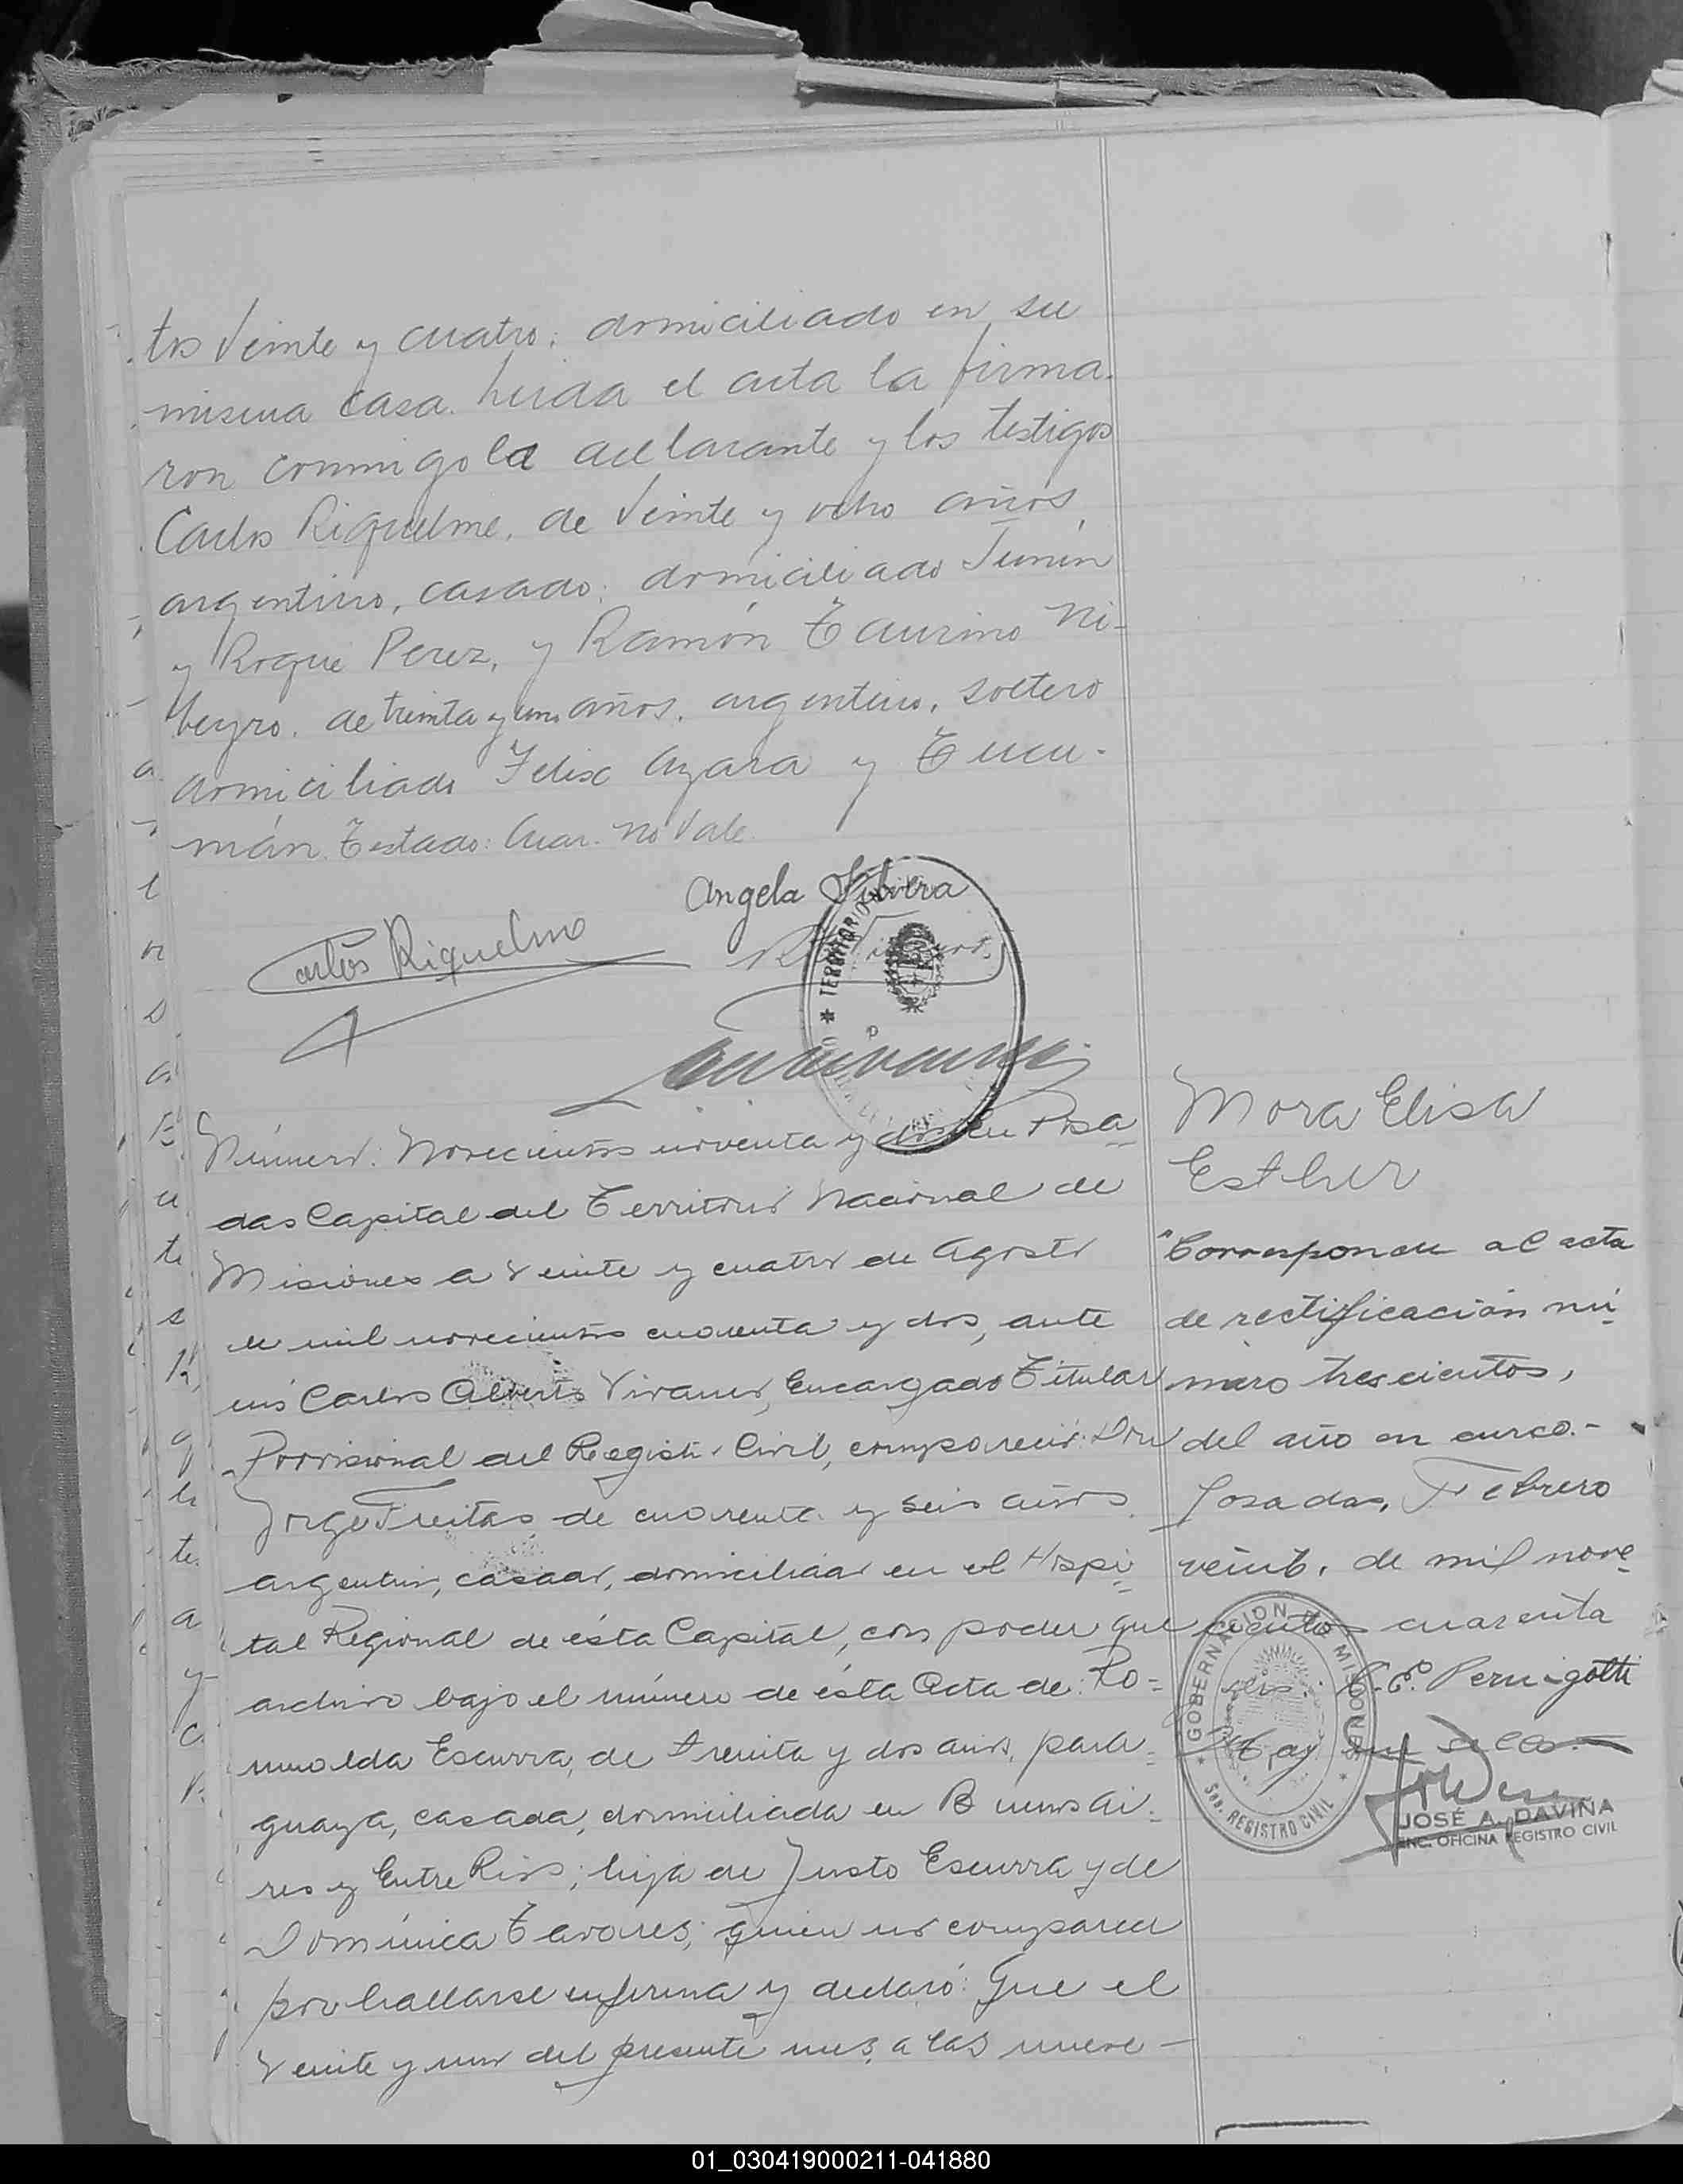 tos Veinte y cuatro; domiciliado en su
misma casa. Leida el acta la firma.
ron conmigo la declarante y los testigos
Carlos Riquelme, de Veinte y ocho años,
argentino, casado; domiciliado Junin
y Roque Perez, y Ramón Taurino Ni-
beyro, de treinta y un años, argentino, soltero
domiciliado Felix Azara y Tucu-
mán. Testado: No Vale.
Angela Silvera
Carlos Riquelme
TERRITORIO
Número: Novecientos noventa y dos: En Posa=
das Capital del Territorio Nacional de
Misiones a veinte y cuatro de Agosto
de mil novecientos cuarenta y dos, ante
mi Carlos Alberto Vivanco, Encargado Titular
Provisional del Registro Civil, compareció: Don
Jorge Freitas, de cuarenta y seis años,
argentino, casado, domiciliado en el Hospi=
tal Regional de ésta Capital, con poder que
archivo bajo el número de ésta Acta de: Ro=
mualda Escurra, de treinta y dos años, para=
guaya, casada, domiciliada en Buenos Ai=
res y Entre Rios; hija de Justo Escurra y de
Dominica Tavares; quien no comparece
por hallarse enferma y declaró: Que el
veinte y uno del presente mes, a las nueve
Mora Elisa
Esther
"Corresponde al acta
de rectificación nú-
mero trescientos,
del año en curso.-
Posadas, Febrero
veinte de mil nove-
cientos cuarenta
seis: E.E. Pernigotti
Hay un sello.
GOBERNACION DE MISIONES
Sec. REGISTRO CIVIL
JOSÉ A. DAVIÑA
ENC. OFICINA REGISTRO CIVIL
01_030419000211-041880